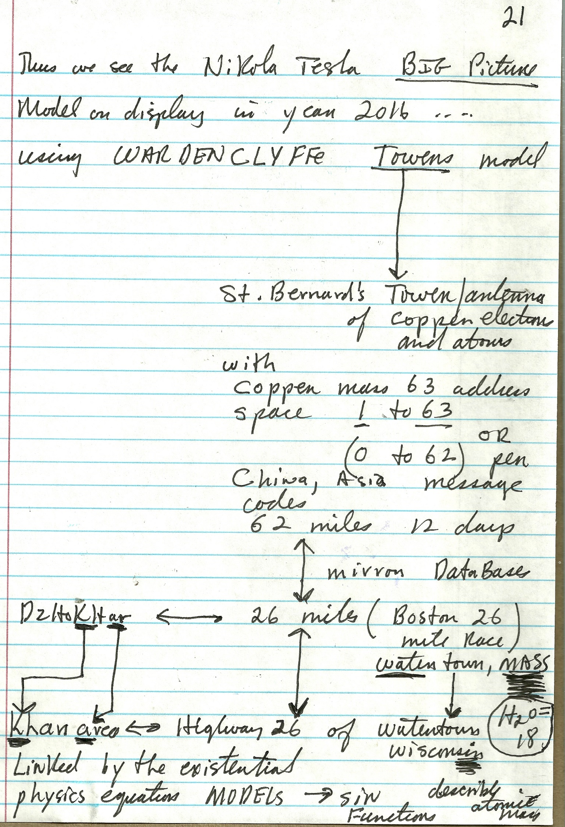 21
Thus we see the Nikola Tesla BIG Picture
Model on display in year 2016 ....
using WARDENCLYFFe Towers model
St. Bernard's Tower/antenna
of copper electrons
and atoms
with
copper mass 63 address
space 1 to 63
OR
(0 to 62) per
China, Asia message
codes
62 miles 12 days
mirror DataBases
DzHoKHar ↔ 26 miles (Boston 26
mile Race)
watertown, MASS
Khan area ↔ Highway 26 of watertown
wisconsin
H2O=
18
Linked by the existential
physics equations MODELS → sin describe
Functions atomic
mass